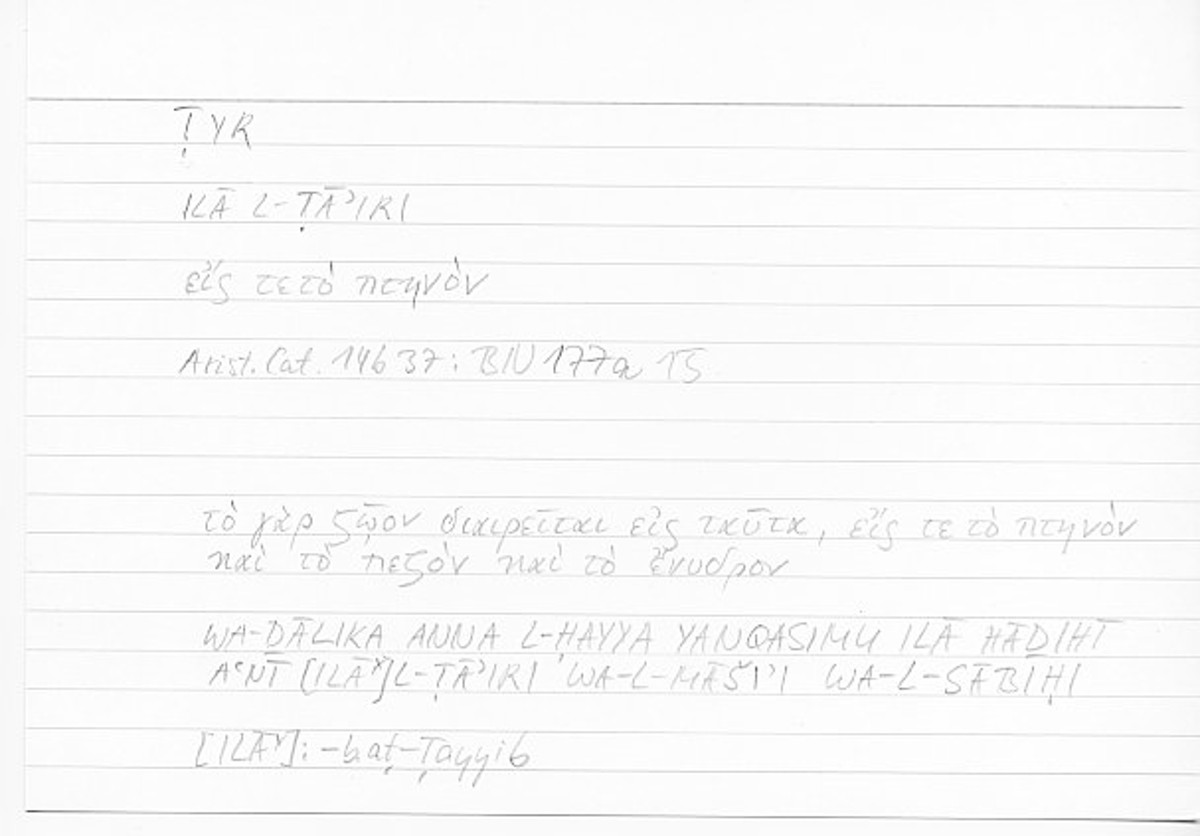 ṬYR
ILĀ L-ṬĀʾIRI
εἴς τε τὸ πτηνὸν
Arist. Cat. 14b37: BN 177a 15
τὸ γὰρ ζῷον διαιρεῖται εἰς ταῦτα, εἴς τε τὸ πτηνὸν
καὶ τὸ πεζὸν καὶ τὸ ἔνυδρον
WA-ḎĀLIKA ANNA L-ḤAYYA YANQASIMU ILĀ HĀḎIHĪ
AʿNĪ [ILĀ] L-ṬĀʾIRI WA-L-MĀŠIʾI WA-L-SĀBIḤI
[ILĀ]: -b. aṭ-Ṭayyib